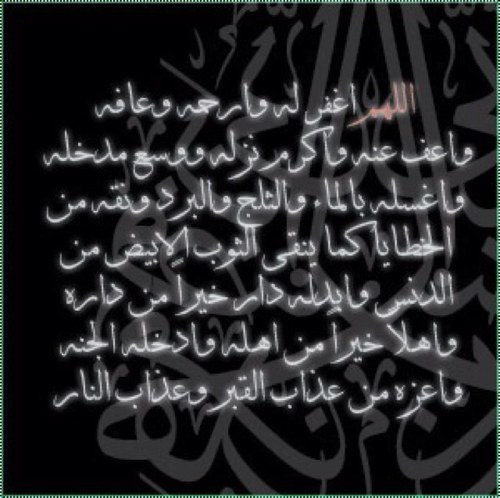 اللهم اغفر له وارحمه وعافه
واعف عنه واكرم نزله ووسع مدخله
واغسله بالماء والثلج والبرد ونقه من
الخطايا كما ينقى الثوب الابيض من
الدنس وابدله دار خيراً من داره
واهلا خيراً من اهله وادخله الجنه
واعزه من عذاب القبر وعذاب النار